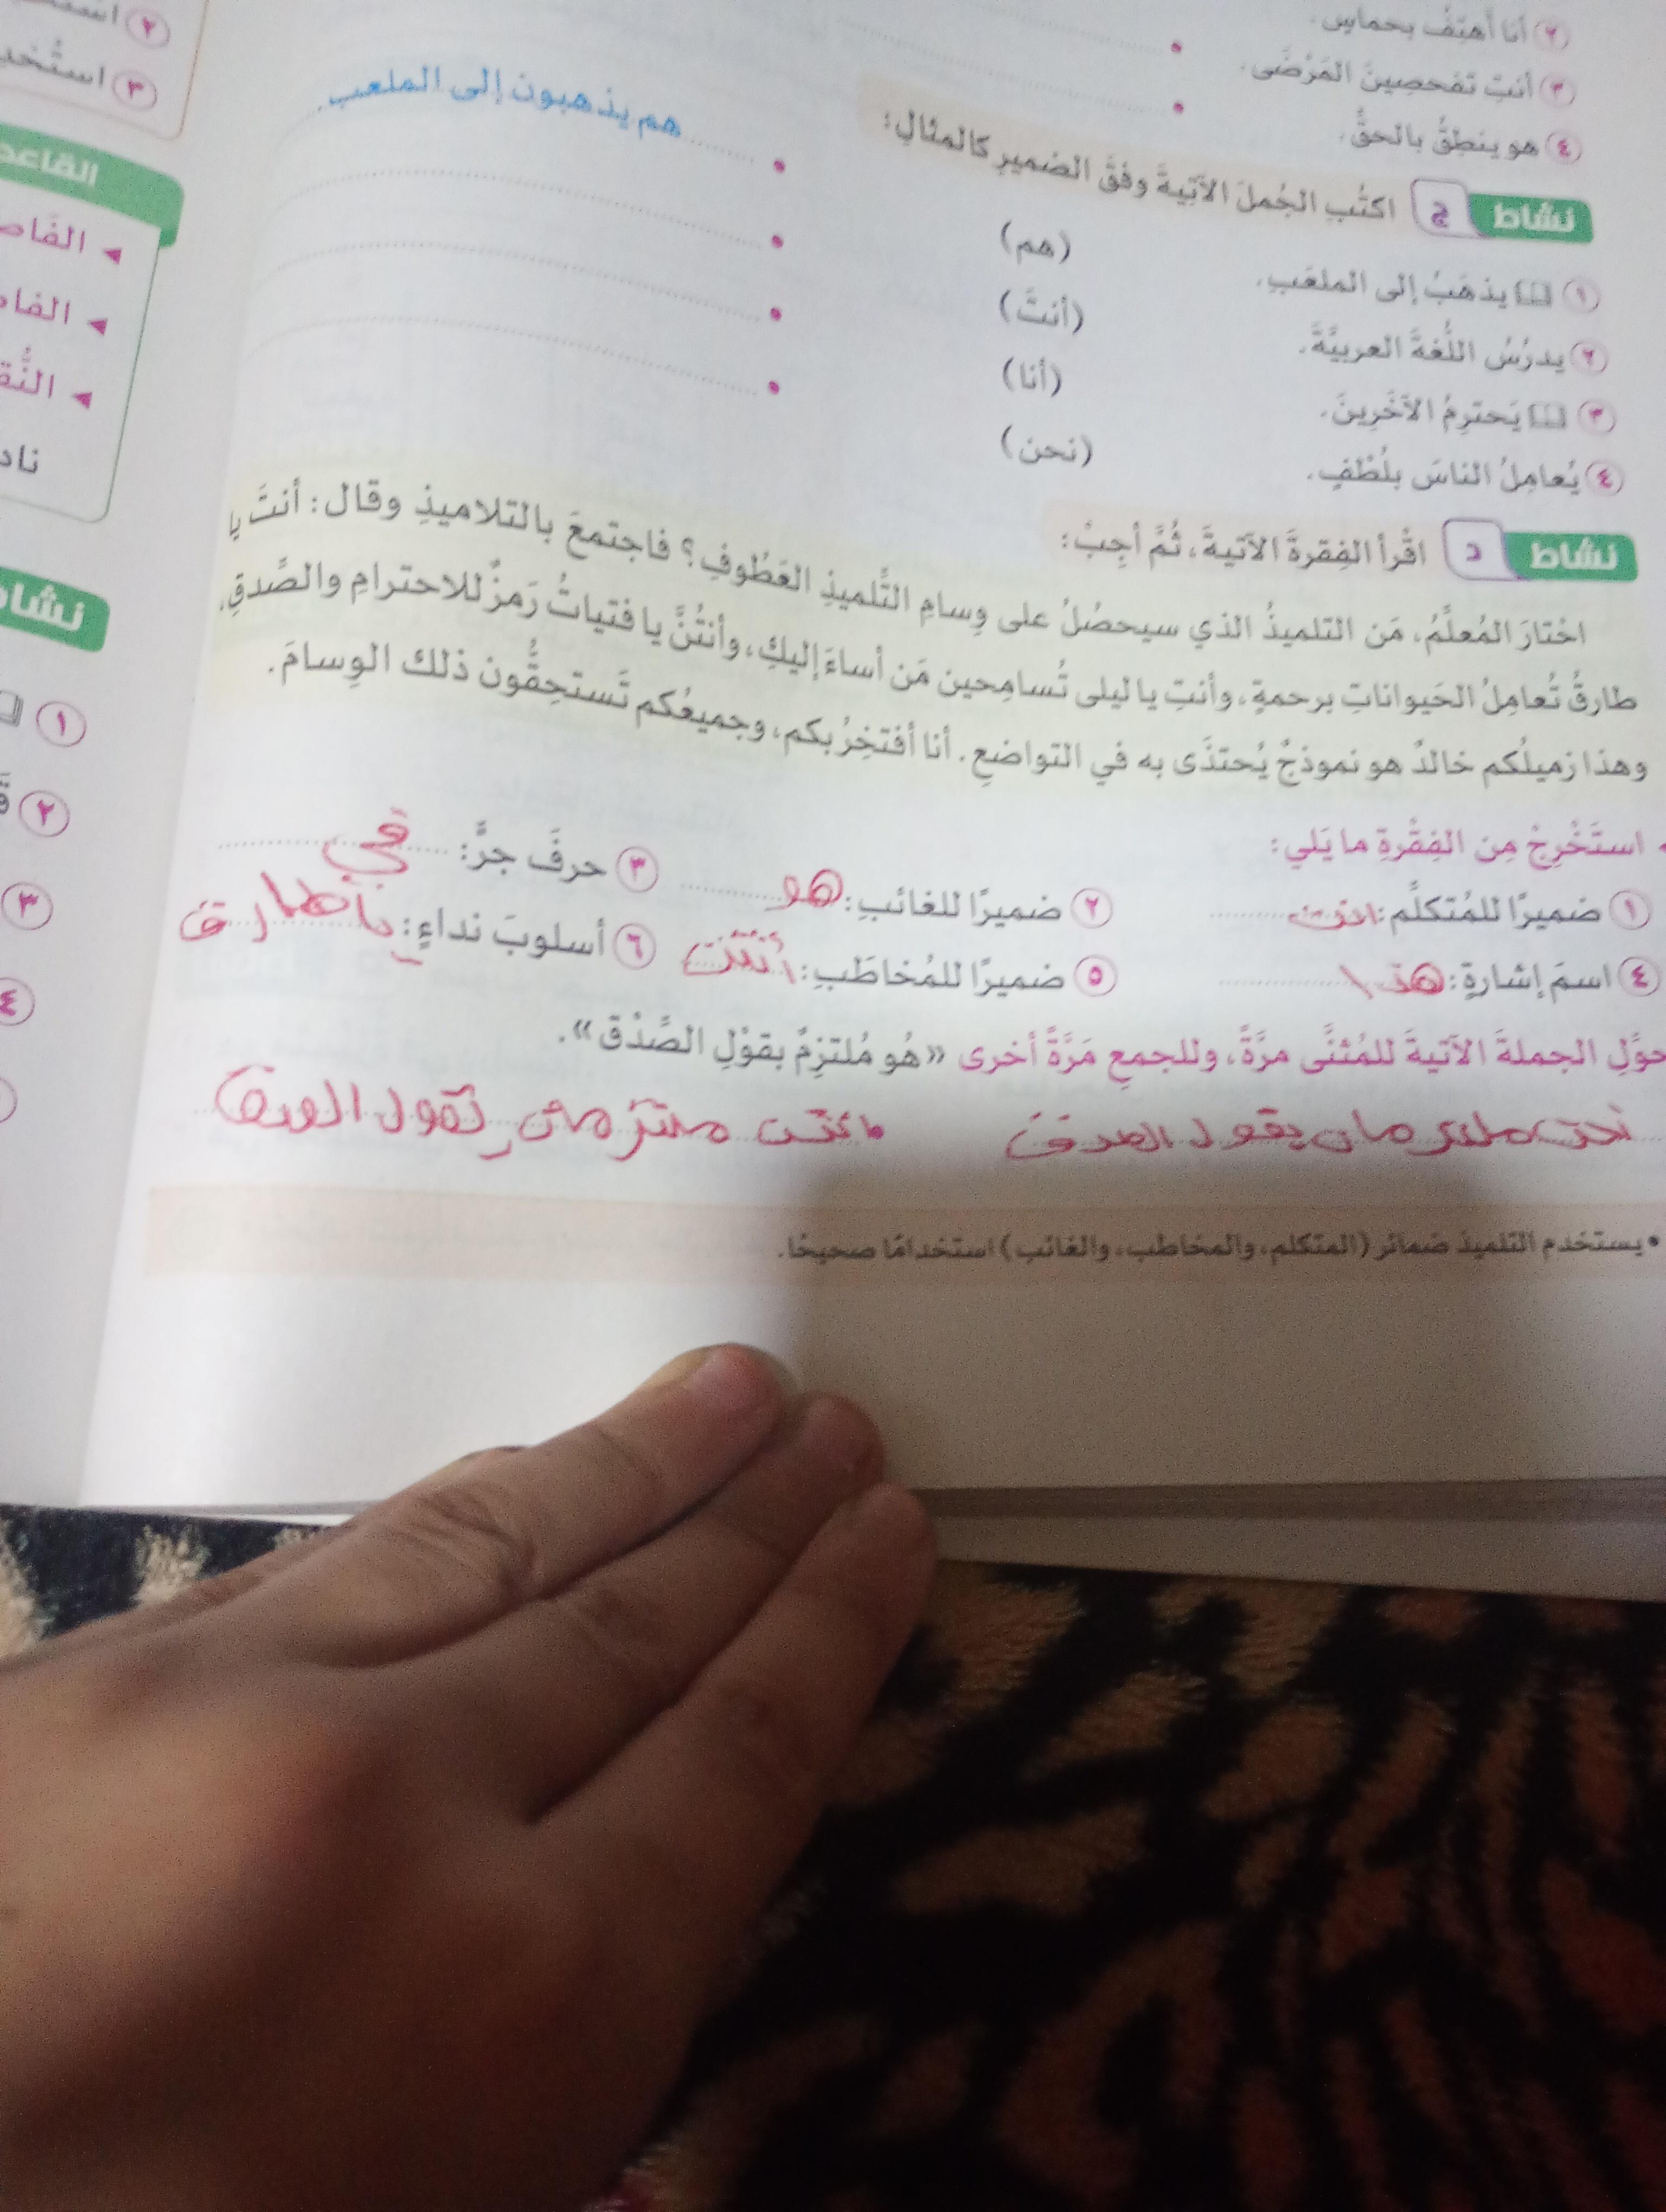 ٢ أنا أهتِفُ بحماسٍ.
٣ أنتِ تفحصِينَ المَرْضَى.
٤ هو ينطِقُ بالحقِّ.
نشاط ج اكتُبِ الجُملَ الآتِيةَ وفقَ الضميرِ كالمثالِ:
١ يذهَبُ إلى الملعَبِ. (هم) هم يذهبون إلى الملعب.
٢ يدرُسُ اللُّغةَ العربيَّةَ. (أنتَ)
٣ يَحترِمُ الآخَرِينَ. (أنا)
٤ يُعامِلُ الناسَ بلُطْفٍ. (نحن)
نشاط د اقْرأ الفِقرةَ الآتيةَ، ثُمَّ أجِبْ:
احْتارَ المُعلِّمُ، مَن التلميذُ الذي سيحصُلُ على وِسامِ التِّلميذِ العَطُوفِ؟ فاجتمعَ بالتلاميذِ وقال: أنتَ يا
طارقُ تُعامِلُ الحَيواناتِ برحمةٍ، وأنتِ يا ليلى تُسامِحين مَن أساءَ إليكِ، وأنتُنَّ يا فتياتُ رَمزٌ للاحترامِ والصِّدقِ،
وهذا زميلُكم خالدٌ هو نموذجٌ يُحتذَى به في التواضعِ. أنا أفتخِرُ بكم، وجميعُكم تَستحِقُّون ذلك الوِسامَ.
استَخْرِجْ مِن الفِقْرةِ ما يَلي:
١ ضميرًا للمُتكلِّم: انت ٢ ضميرًا للغائبِ: هو ٣ حرفَ جرٍّ: في
٤ اسمَ إشارةٍ: هذا ٥ ضميرًا للمُخاطَبِ: أنتن ٦ أسلوبَ نداءٍ: يا طارق
حوِّلِ الجملةَ الآتيةَ للمُثنَّى مرَّةً، وللجمعِ مَرَّةً أخرى «هُو مُلتزِمٌ بقوْلِ الصِّدْق».
نحن ملتزمان بقول الصدق ملتزمان بقول الصدق
• يستخدم التلميذ ضمائر (المتكلم، والمخاطب، والغائب) استخدامًا صحيحًا.
٢
٣ استُخد
القاعد
الفا
النُّق
ناد
نشا
١
٢
٣
٤